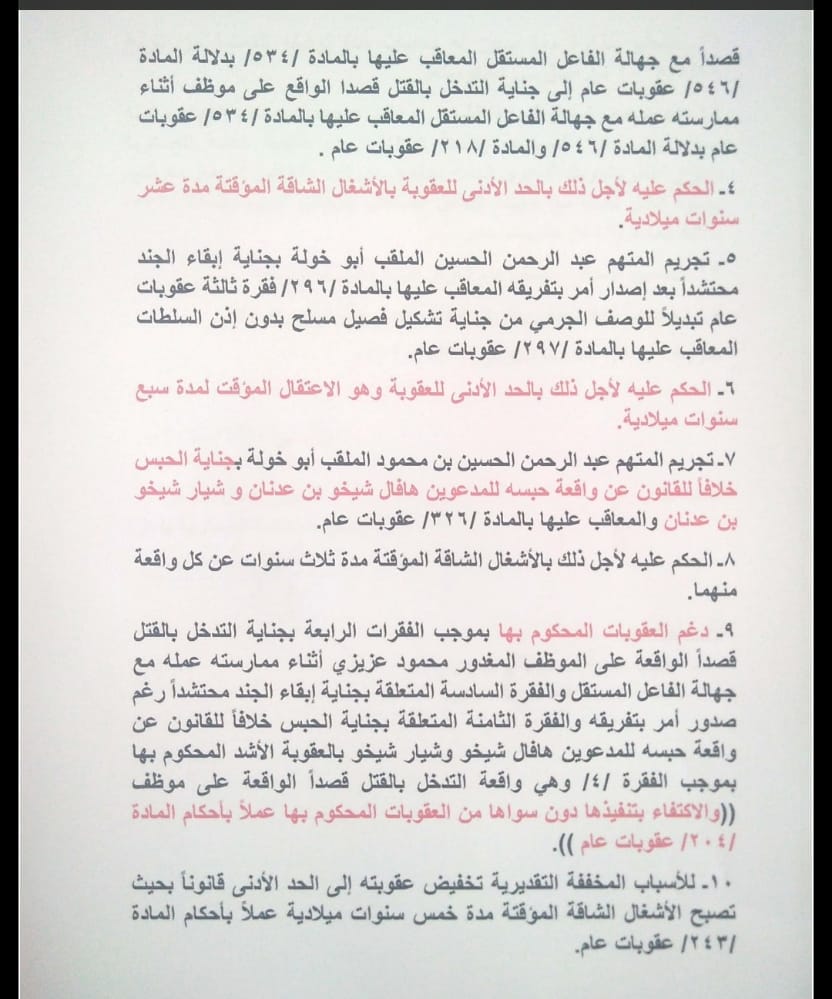 قصداً مع جهالة الفاعل المستقل المعاقب عليها بالمادة /٥٣٤/ بدلالة المادة
/٥٤٦/ عقوبات عام إلى جناية التدخل بالقتل قصدا الواقع على موظف أثناء
ممارسته عمله مع جهالة الفاعل المستقل المعاقب عليها بالمادة /٥٣٤/ عقوبات
عام بدلالة المادة /٥٤٦/ والمادة /٢١٨/ عقوبات عام .
٤ـ الحكم عليه لأجل ذلك بالحد الأدنى للعقوبة بالأشغال الشاقة المؤقتة مدة عشر
سنوات ميلادية.
٥ـ تجريم المتهم عبد الرحمن الحسين الملقب أبو خولة بجناية إبقاء الجند
محتشداً بعد إصدار أمر بتفريقه المعاقب عليها بالمادة /٢٩٦/ فقرة ثالثة عقوبات
عام تبديلاً للوصف الجرمي من جناية تشكيل فصيل مسلح بدون إذن السلطات
المعاقب عليها بالمادة /٢٩٧/ عقوبات عام.
٦ـ الحكم عليه لأجل ذلك بالحد الأدنى للعقوبة وهو الاعتقال المؤقت لمدة سبع
سنوات ميلادية.
٧ـ تجريم المتهم عبد الرحمن الحسين بن محمود الملقب أبو خولة بجناية الحبس
خلافاً للقانون عن واقعة حبسه للمدعوين هافال شيخو بن عدنان و شيار شيخو
بن عدنان والمعاقب عليها بالمادة /٣٢٦/ عقوبات عام.
٨ـ الحكم عليه لأجل ذلك بالأشغال الشاقة المؤقتة مدة ثلاث سنوات عن كل واقعة
منهما.
٩ـ دغم العقوبات المحكوم بها بموجب الفقرات الرابعة بجناية التدخل بالقتل
قصداً الواقعة على الموظف المغدور محمود عزيزي أثناء ممارسته عمله مع
جهالة الفاعل المستقل والفقرة السادسة المتعلقة بجناية إبقاء الجند محتشداً رغم
صدور أمر بتفريقه والفقرة الثامنة المتعلقة بجناية الحبس خلافاً للقانون عن
واقعة حبسه للمدعوين هافال شيخو وشيار شيخو بالعقوبة الأشد المحكوم بها
بموجب الفقرة /٤/ وهي واقعة التدخل بالقتل قصداً الواقعة على موظف
((والاكتفاء بتنفيذها دون سواها من العقوبات المحكوم بها عملاً بأحكام المادة
/٢٠٤/ عقوبات عام )).
١٠ـ للأسباب المخففة التقديرية تخفيض عقوبته إلى الحد الأدنى قانوناً بحيث
تصبح الأشغال الشاقة المؤقتة مدة خمس سنوات ميلادية عملاً بأحكام المادة
/٢٤٣/ عقوبات عام.